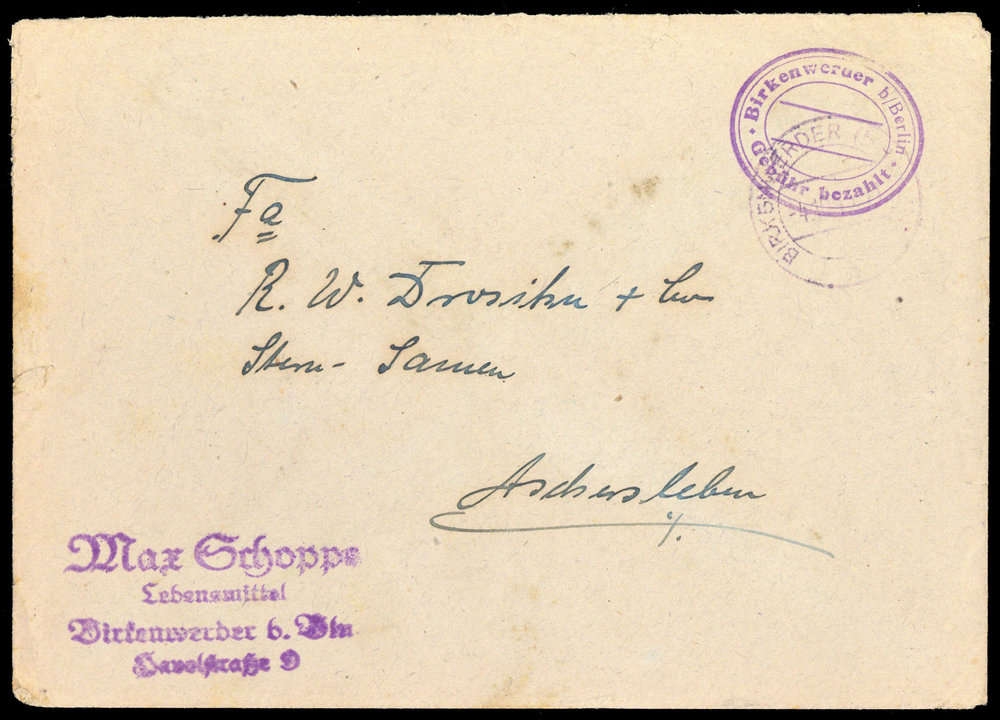 Birkenwerder b/Berlin
Gebühr bezahlt
Fa
R. W. + Co
Stern- Samen
Aschersleben
Max Schopps
Lebensmittel
Birkenwerder b. Bln
Havelstraße 9